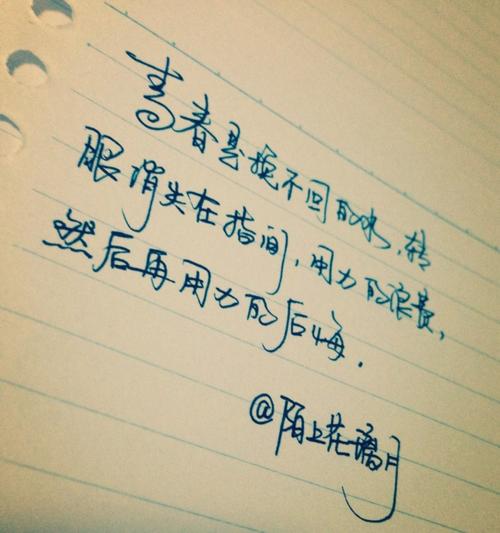 青春是挽不回的水,转
眼消失在指间,用力的浪费,
然后再用力的后悔.
@陌上花璃月